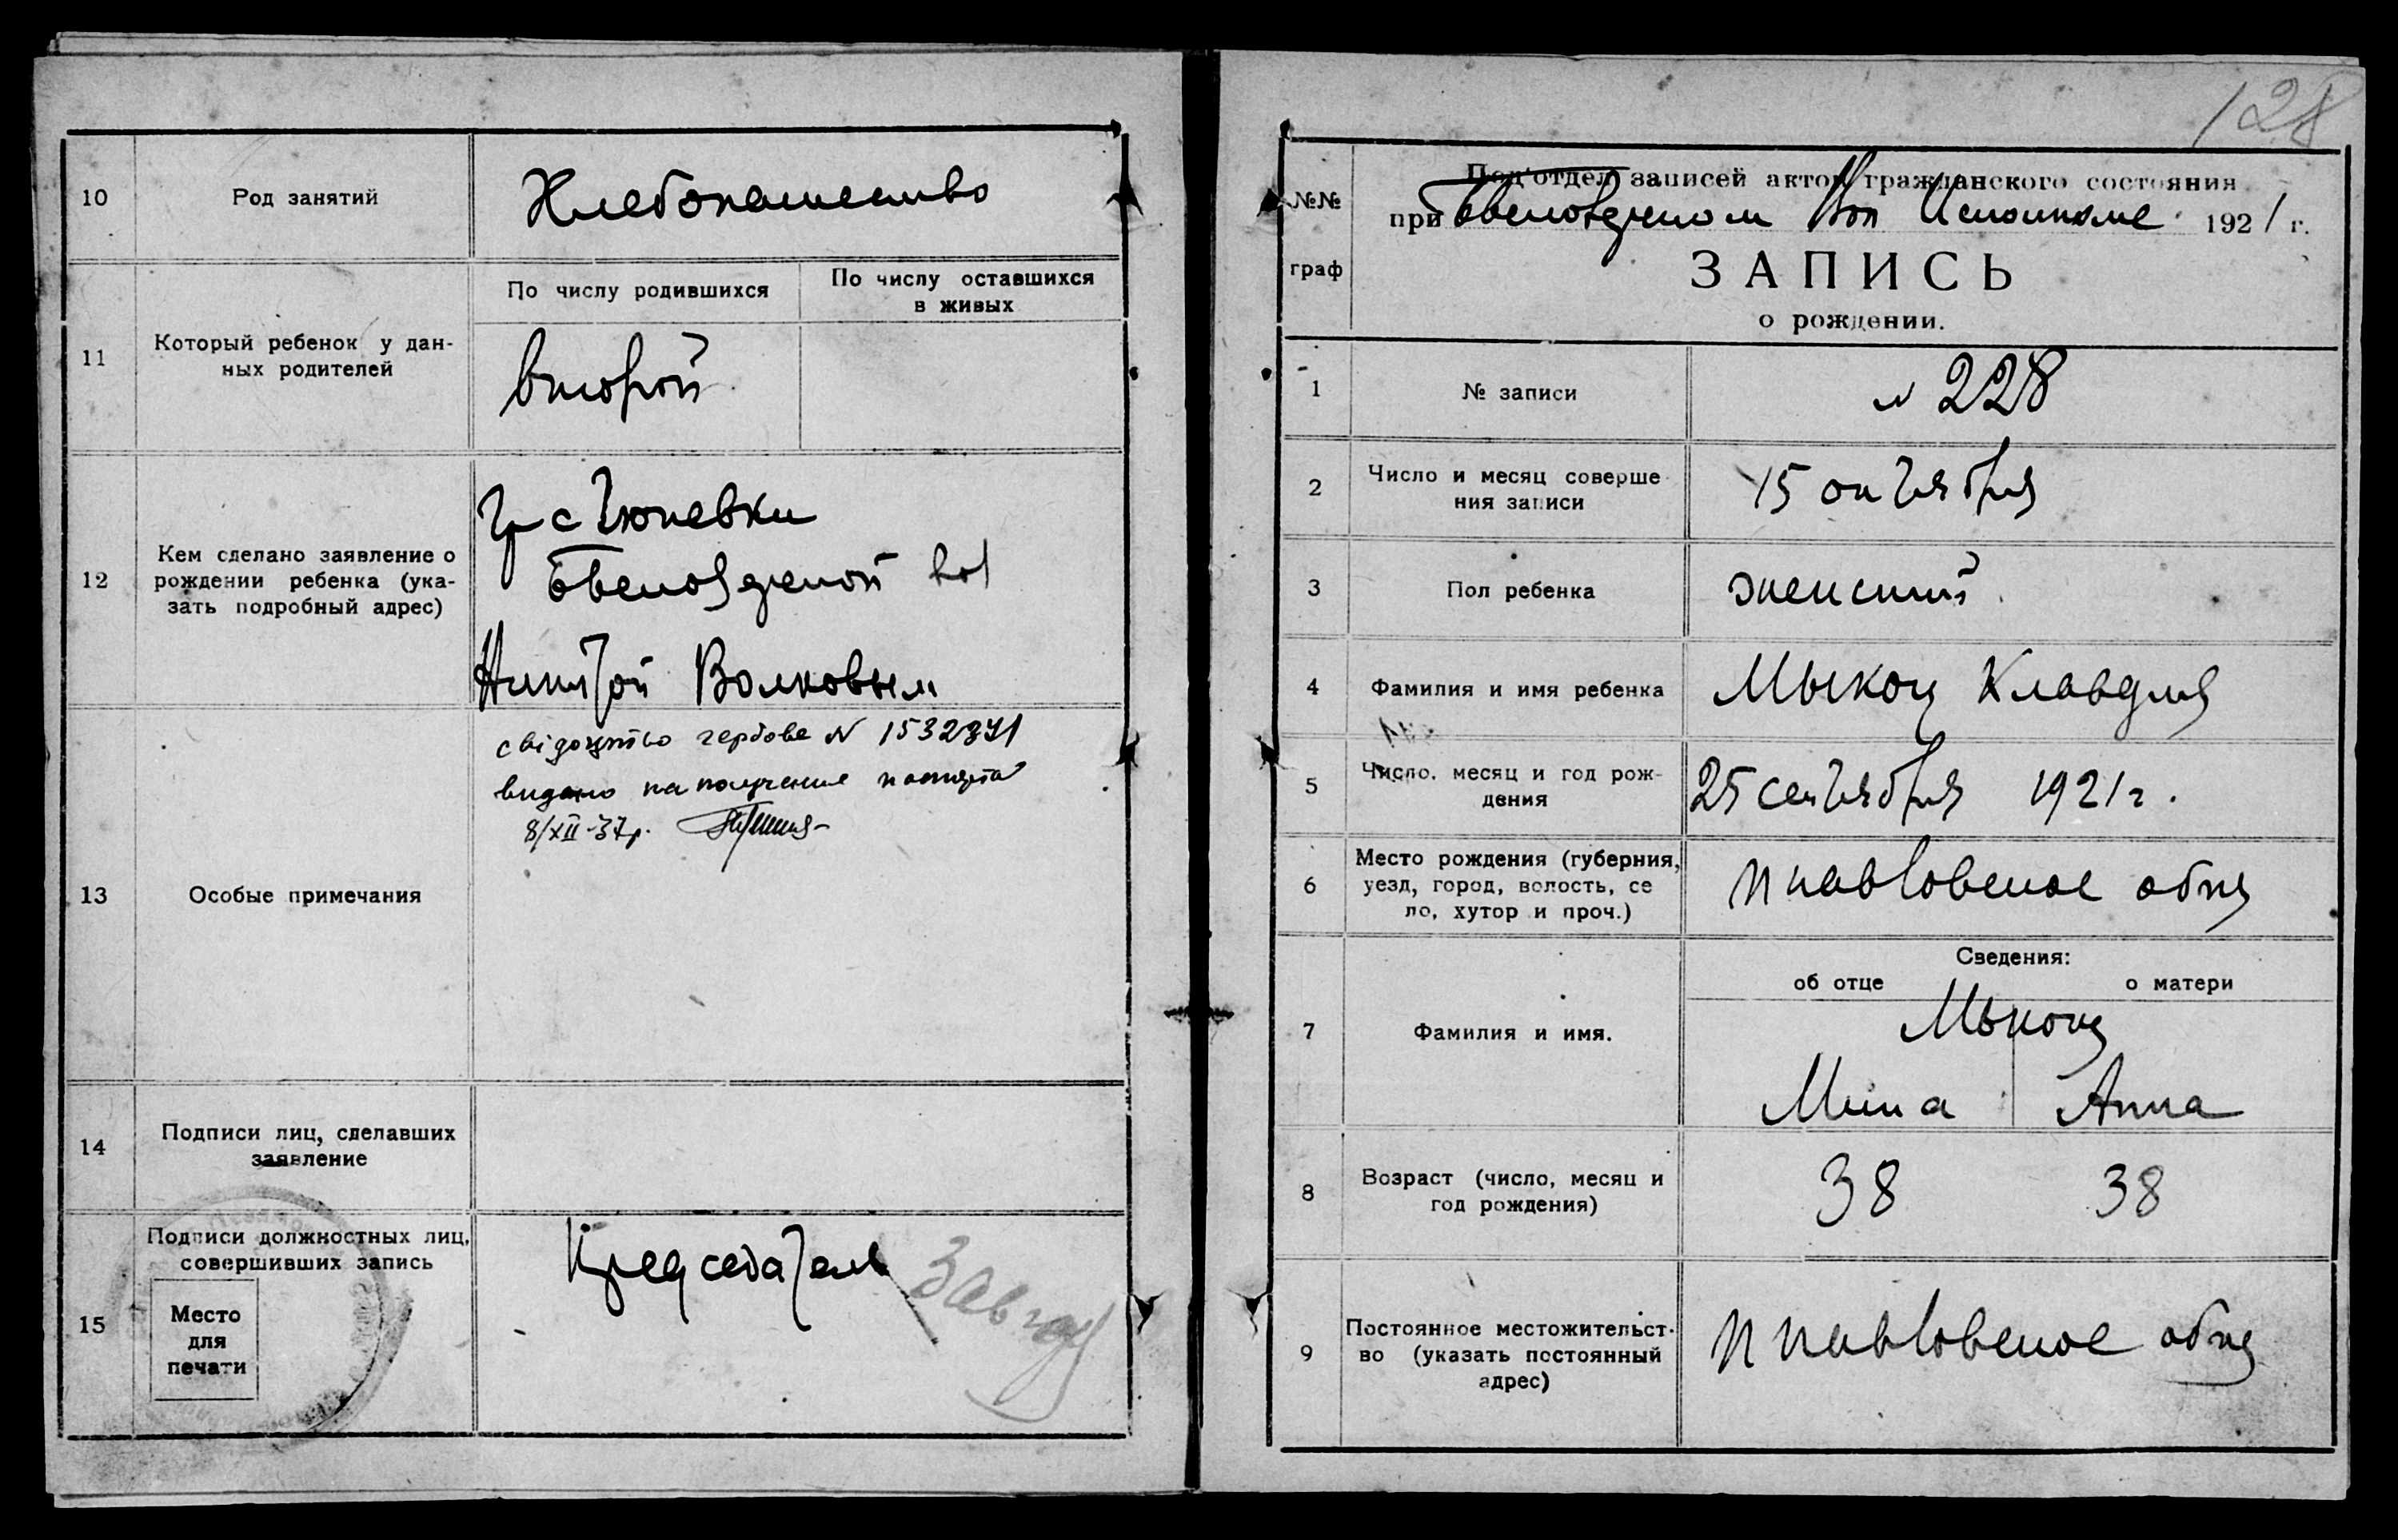 10
Род занятий
Хлебопашество
11
Который ребенок у дан-
ных родителей
По числу родившихся
По числу оставшихся
в живых
второй
12
Кем сделано заявление о
рождении ребенка (ука-
зать подробный адрес)
гр с Тюпевки
вол
Никитой Волковым
13
Особые примечания
свідоцтво гербове N 1532371
видано на получение паспорта
8/XII-37р.
14
Подписи лиц, сделавших
заявление
15
Подписи должностных лиц,
совершивших запись
Место
для
печати
Председатель
Завгор
128
№№
граф
Под'отдел записей актов гражданского состояния
при Вол Исполкоме 1921 г.
ЗАПИСЬ
о рождении.
1
№ записи
N 228
2
Число и месяц соверше-
ния записи
15 октября
3
Пол ребенка
женский
4
Фамилия и имя ребенка
Мыкоц Клавдия
5
Число, месяц и год рож-
дения
25 сентября 1921 г.
6
Место рождения (губерния,
уезд, город, волость, се
ло, хутор и проч.)
Павловское
7
Фамилия и имя.
Сведения:
об отце
о матери
Мыкоц
Мина
Анна
8
Возраст (число, месяц и
год рождения)
38
38
9
Постоянное местожительст-
во (указать постоянный
адрес)
Павловское